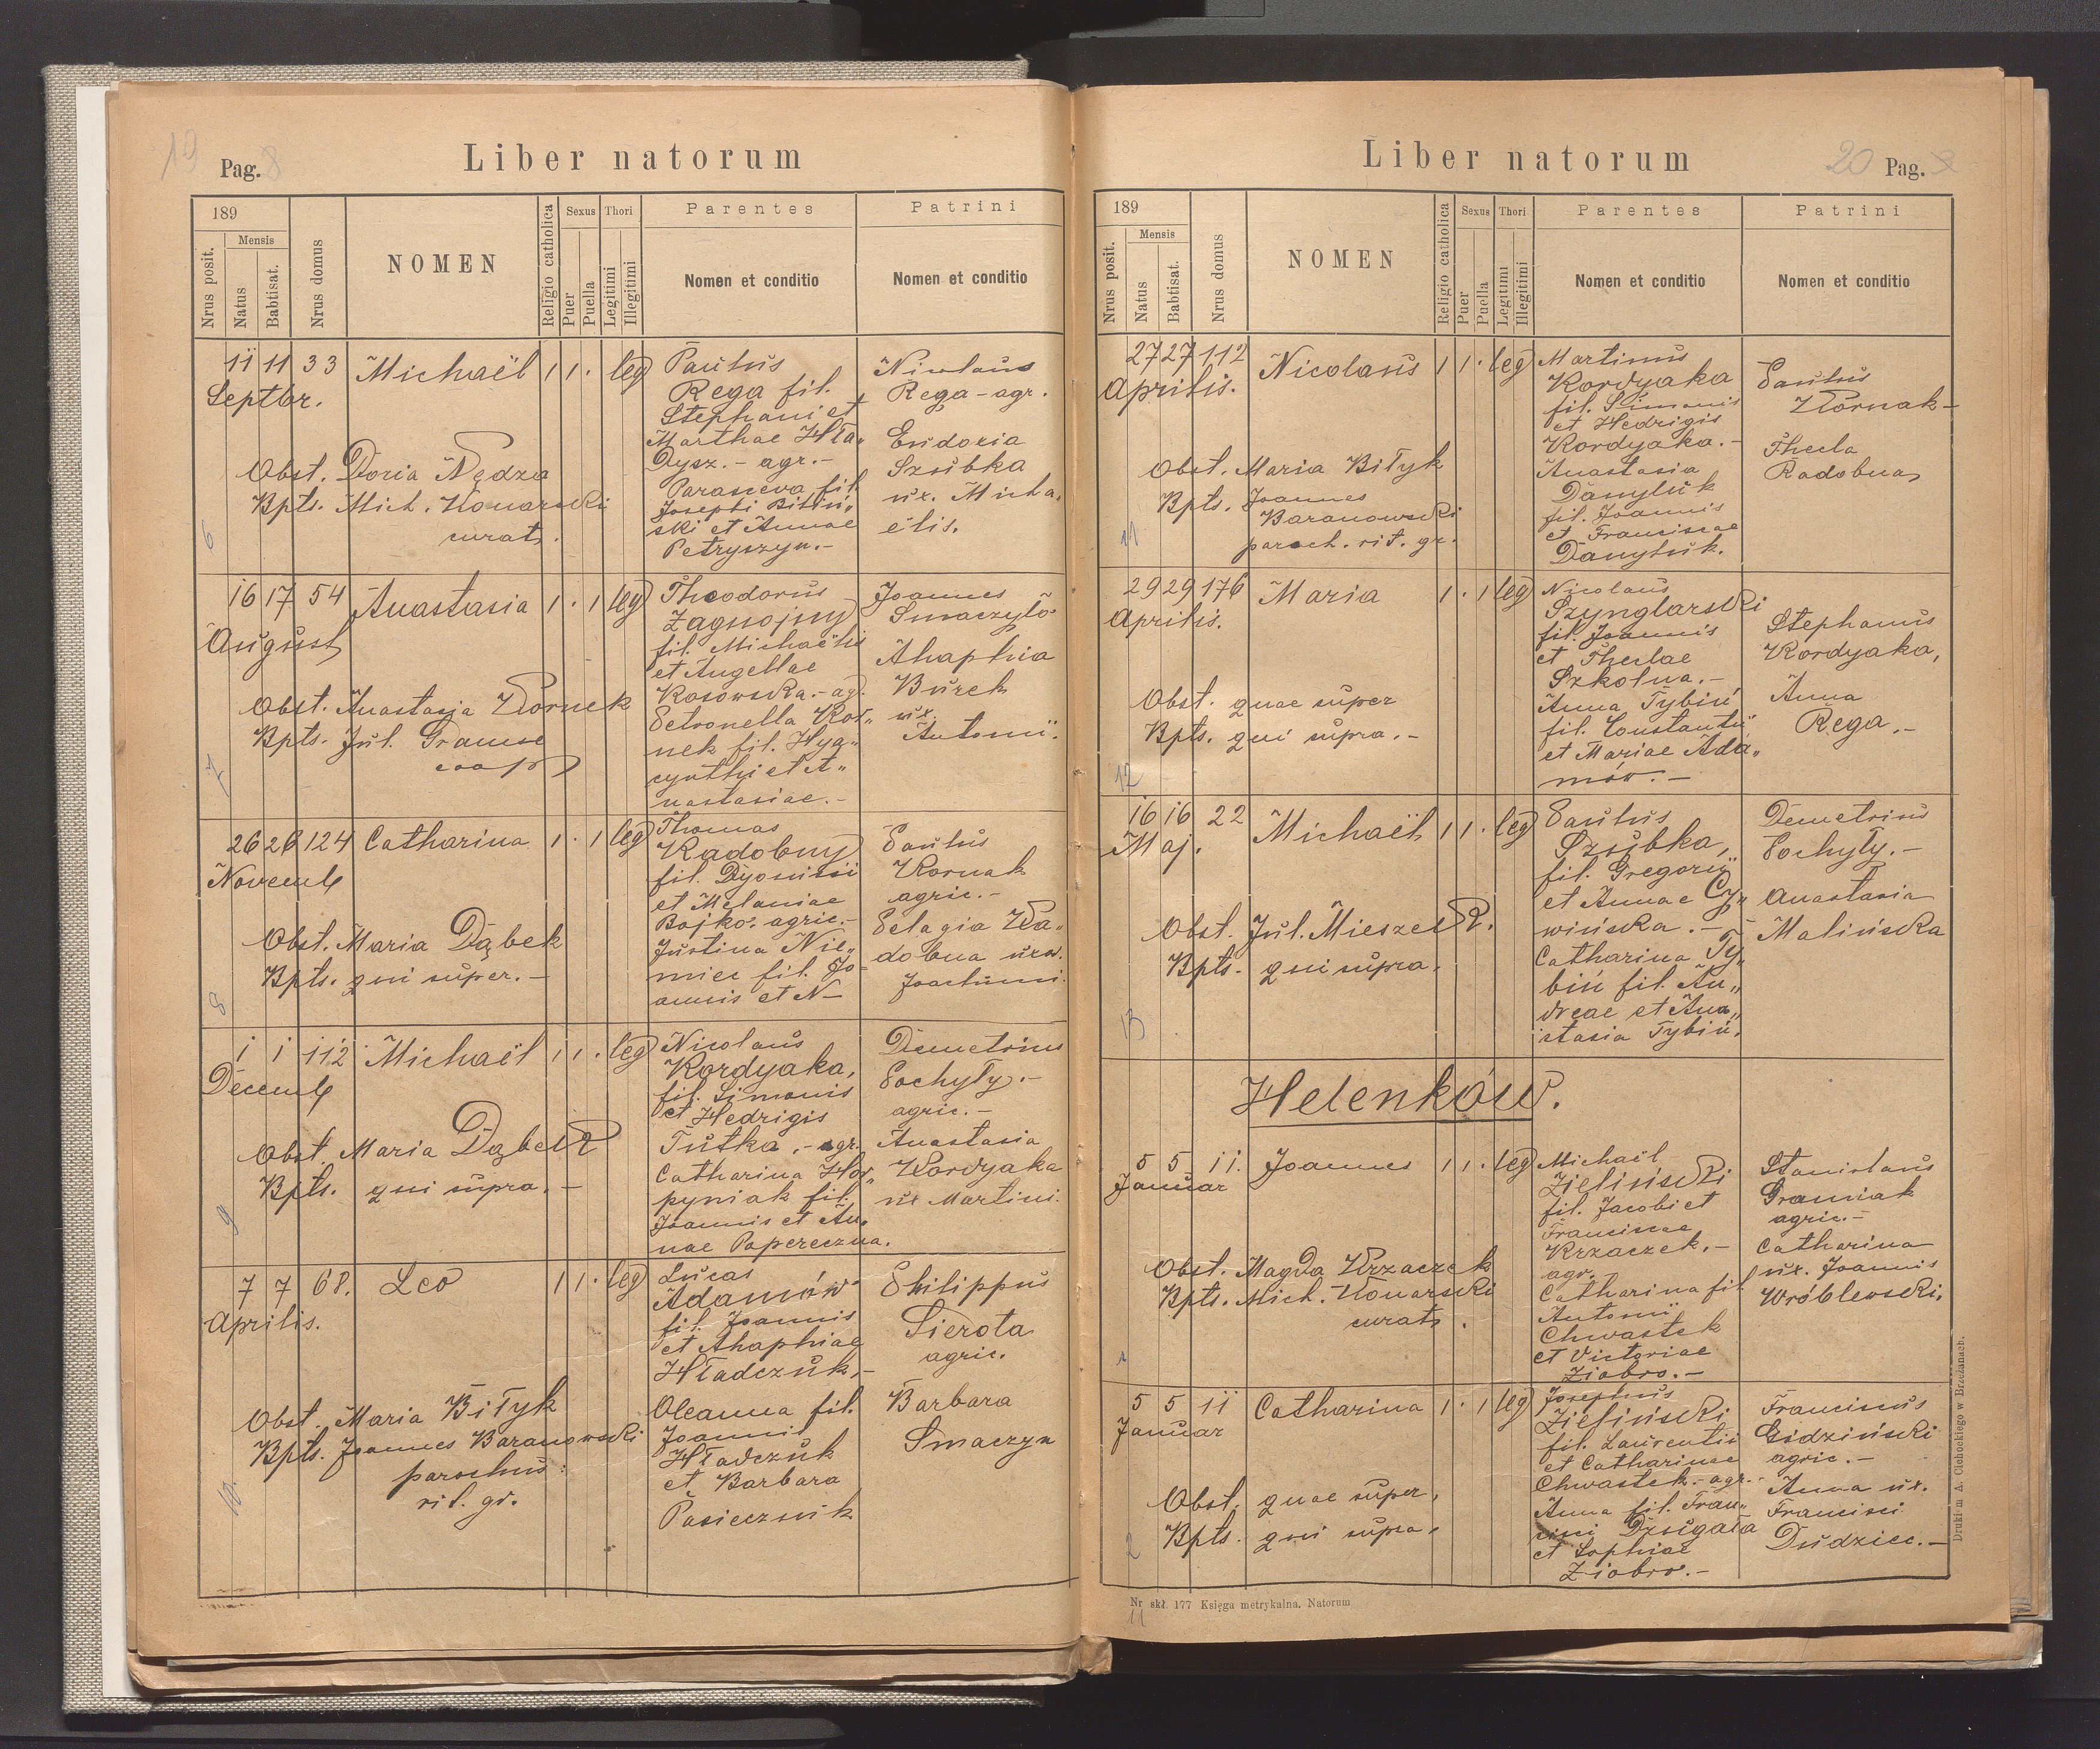 19
Pag. 8
Liber natorum
189
Nrus posit.
Mensis
Natus
Babtisat.
Nrus domus
NOMEN
Religio catholica
Sexus
Puer
Puella
Thori
Legitimi
Illegitimi
Parentes
Nomen et conditio
Patrini
Nomen et conditio
11 11 33 Michaël 1 1 . leg
Septbr.
Obst. Doria Nędza
Bpts. Mich. Konarski
curat.
6
Paulus
Rega fil.
Stephani et
Marthae Hła„
dysz. - agr. -
Parasceva fil.
Josephi Bitiń„
ski et Annae
Petryszyn. -
Nicolaus
Rega - agr.
Eudoxia
Szubka
ux. Micha„
elis.
16 17 54 Anastasia 1 . 1 leg
August
Obst. Anastasia Kornek
Bpts. Jul.
coop
7
Theodorus
Zagnojny
fil. Michaëlis
et Angellae
Kosowska. - agr.
Petronella Kor„
nek fil. Hya„
cynthi et A„
nastasiae. -
Joannes
Smaczyło
Ahaphia
Burek
ux.
Antonii.
26 26 124 Catharina 1 . 1 leg
Novemb
Obst. Maria Dąbek
Bpts. qui super. -
8
Thomas
Radobny
fil. Dyonisii
et Melaniae
Bojko. agric. -
Justina Nie„
miec fil. Jo„
annis et N -
Paulus
Kornak
agric. -
Pelagia Ra„
dobna uxor.
Joachimi.
1 1 112 Michaël 1 1 . leg
Decemb
Obst. Maria Dąbek
Bpts. qui supra. -
9
Nicolaus
Kordyaka,
fil. Simonis
et Hedvigis
Tutka. - agr.
Catharina Hor„
pyniak fil.
Joannis et An„
nae Papereczna.
Demetrius
Pochyły. -
agric. -
Anastasia
Kordyaka
ux Martini.
7 7 68. Leo 1 1 . leg
Aprilis.
Obst. Maria Biłyk
Bpts. Joannes Baranowski
parochus
rit. gr.
10.
Lucas
Adamów
fil. Joannis
et Ahaphiae
Hładczuk. -
Oleanna fil.
Joannis
Hładczuk
et Barbara
Pasiecznik
Philippus
Sierota
agric.
Barbara
Smaczyn
Liber natorum
20 Pag.
189
Nrus posit.
Mensis
Natus
Babtisat.
Nrus domus
NOMEN
Religio catholica
Sexus
Puer
Puella
Thori
Legitimi
Illegitimi
Parentes
Nomen et conditio
Patrini
Nomen et conditio
27 27 112 Nicolaus 1 1 . leg
Aprilis.
Obst. Maria Biłyk
Bpts. Joannes
Baranowski
paroch. rit. gr.
11
Martinus
Kordyaka
fil. Simonis
et Hedvigis
Kordyaka. -
Anastasia
Danyluk
fil. Joannis
et Franciscae
Danyluk.
Paulus
Kornak -
Thecla
Radobna
29 29 176 Maria 1 . 1 leg
Aprilis.
Obst. quae super
Bpts. qui supra. -
12
Nicolaus
Szynglarski
fil. Joannis
et Theclae
Szkolna. -
Anna Tybiń
fil. Constantii
et Mariae Ada„
mów. -
Stephanus
Kordyaka,
Anna
Rega. -
16 16 22 Michaël 1 1 . leg
Maj.
Obst. Jul. Mieszek.
Bpts. qui supra.
13
Paulus
Szubka,
fil. Gregorii
et Annae Cy„
wińska. -
Catharina Ty„
biń fil. An„
dreae et Ana„
stasia Tybiń.
Demetrius
Pochyły. -
Anastasia
Malińska
Helenków.
5 5 11. Joannes 1 1 . leg
Januar
Obst. Magda Krzaczek
Bpts. Mich. Konarski
curat.
1
Michaël
Zieliński
fil. Jacobi et
Franciscae
Krzaczek. -
agr.
Catharina fil
Antonii
Chwastek
et Victoriae
Ziobro. -
Stanislaus
Graniak
agric. -
Catharina
ux. Joannis
Wróblewski.
5 5 11 Catharina 1 . 1 leg
Januar
Obst. quae super,
Bpts. qui supra.
2
Josephus
Zieliński
fil. Laurentii
et Catharinae
Chwastek. - agr. -
Anna fil. Fran„
cisci Dzugała
et Sophiae
Ziobro. -
Franciscus
Gidziński
agric. -
Anna ux.
Francisci
Dudziec. -
Drukiem A. Cichockiego w Brzeżanach.
Nr skł. 177 Księga metrykalna. Natorum
11